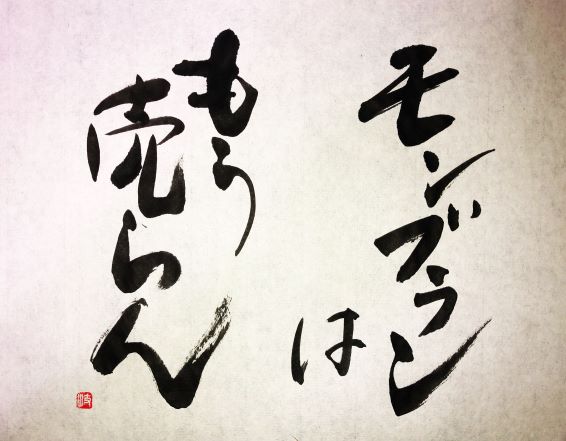 モンブラン
は
もう
売らん